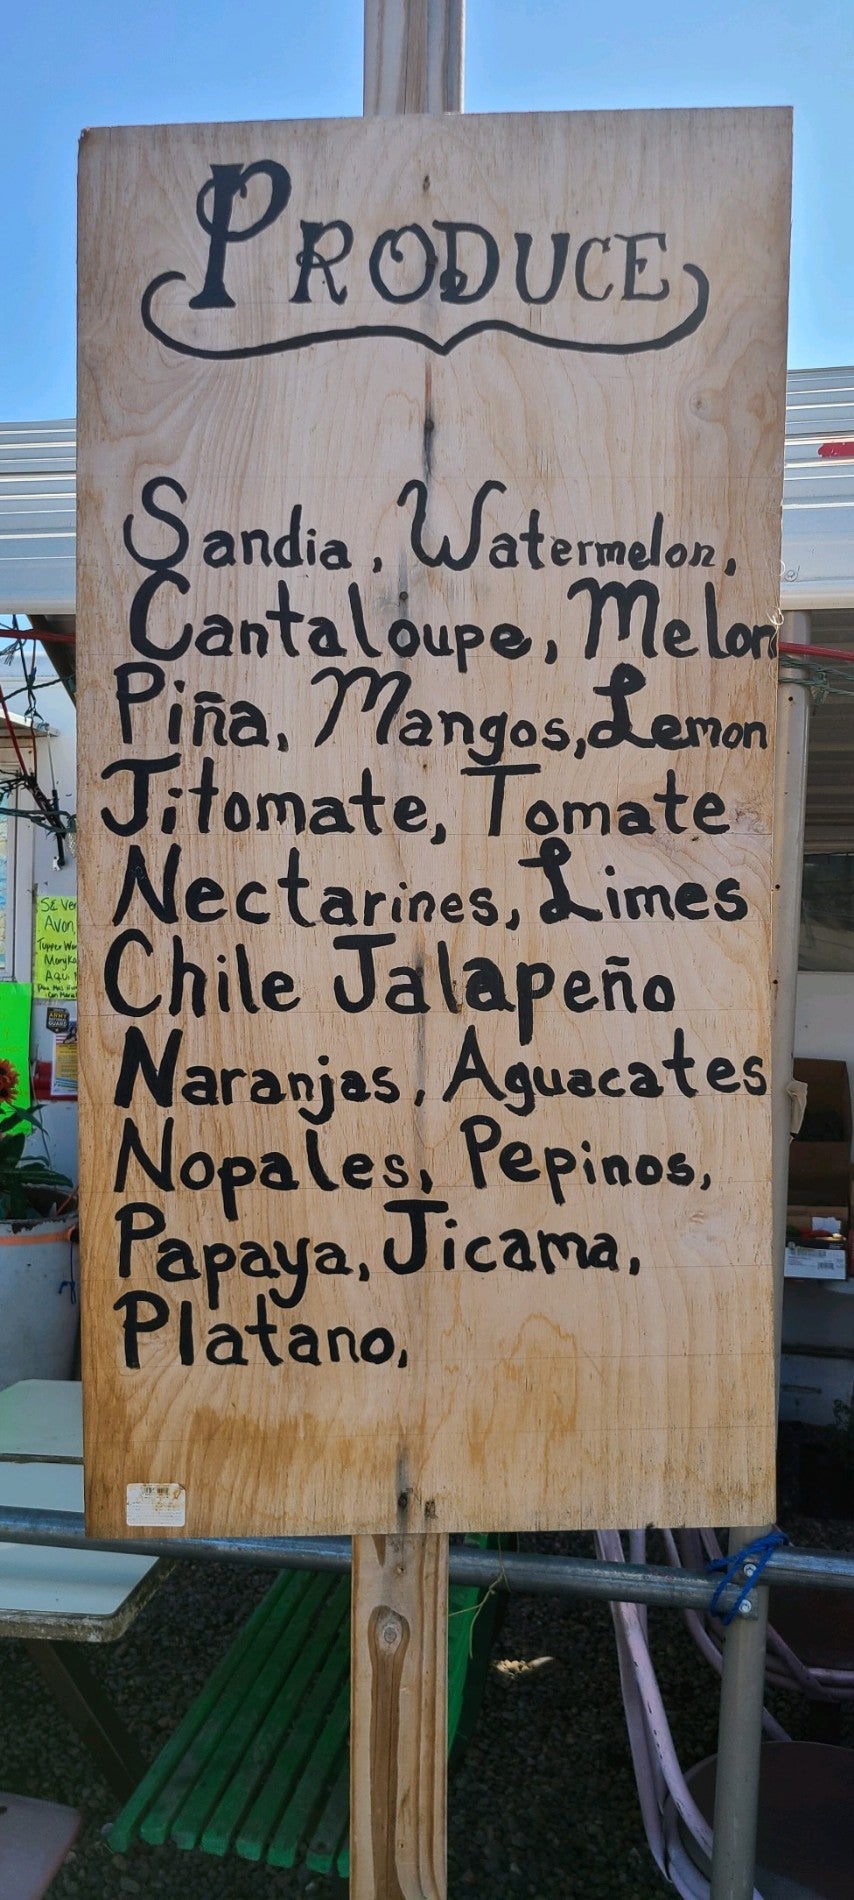 PRODUCE
Sandia, Watermelon,
Cantaloupe, Melon
Piña, Mangos, Lemon
Jitomate, Tomate
Nectarines, Limes
Chile Jalapeño
Naranjas, Aguacates
Nopales, Pepinos,
Papaya, Jicama,
Platano,
SE
Avon,
Tupper
AQUI